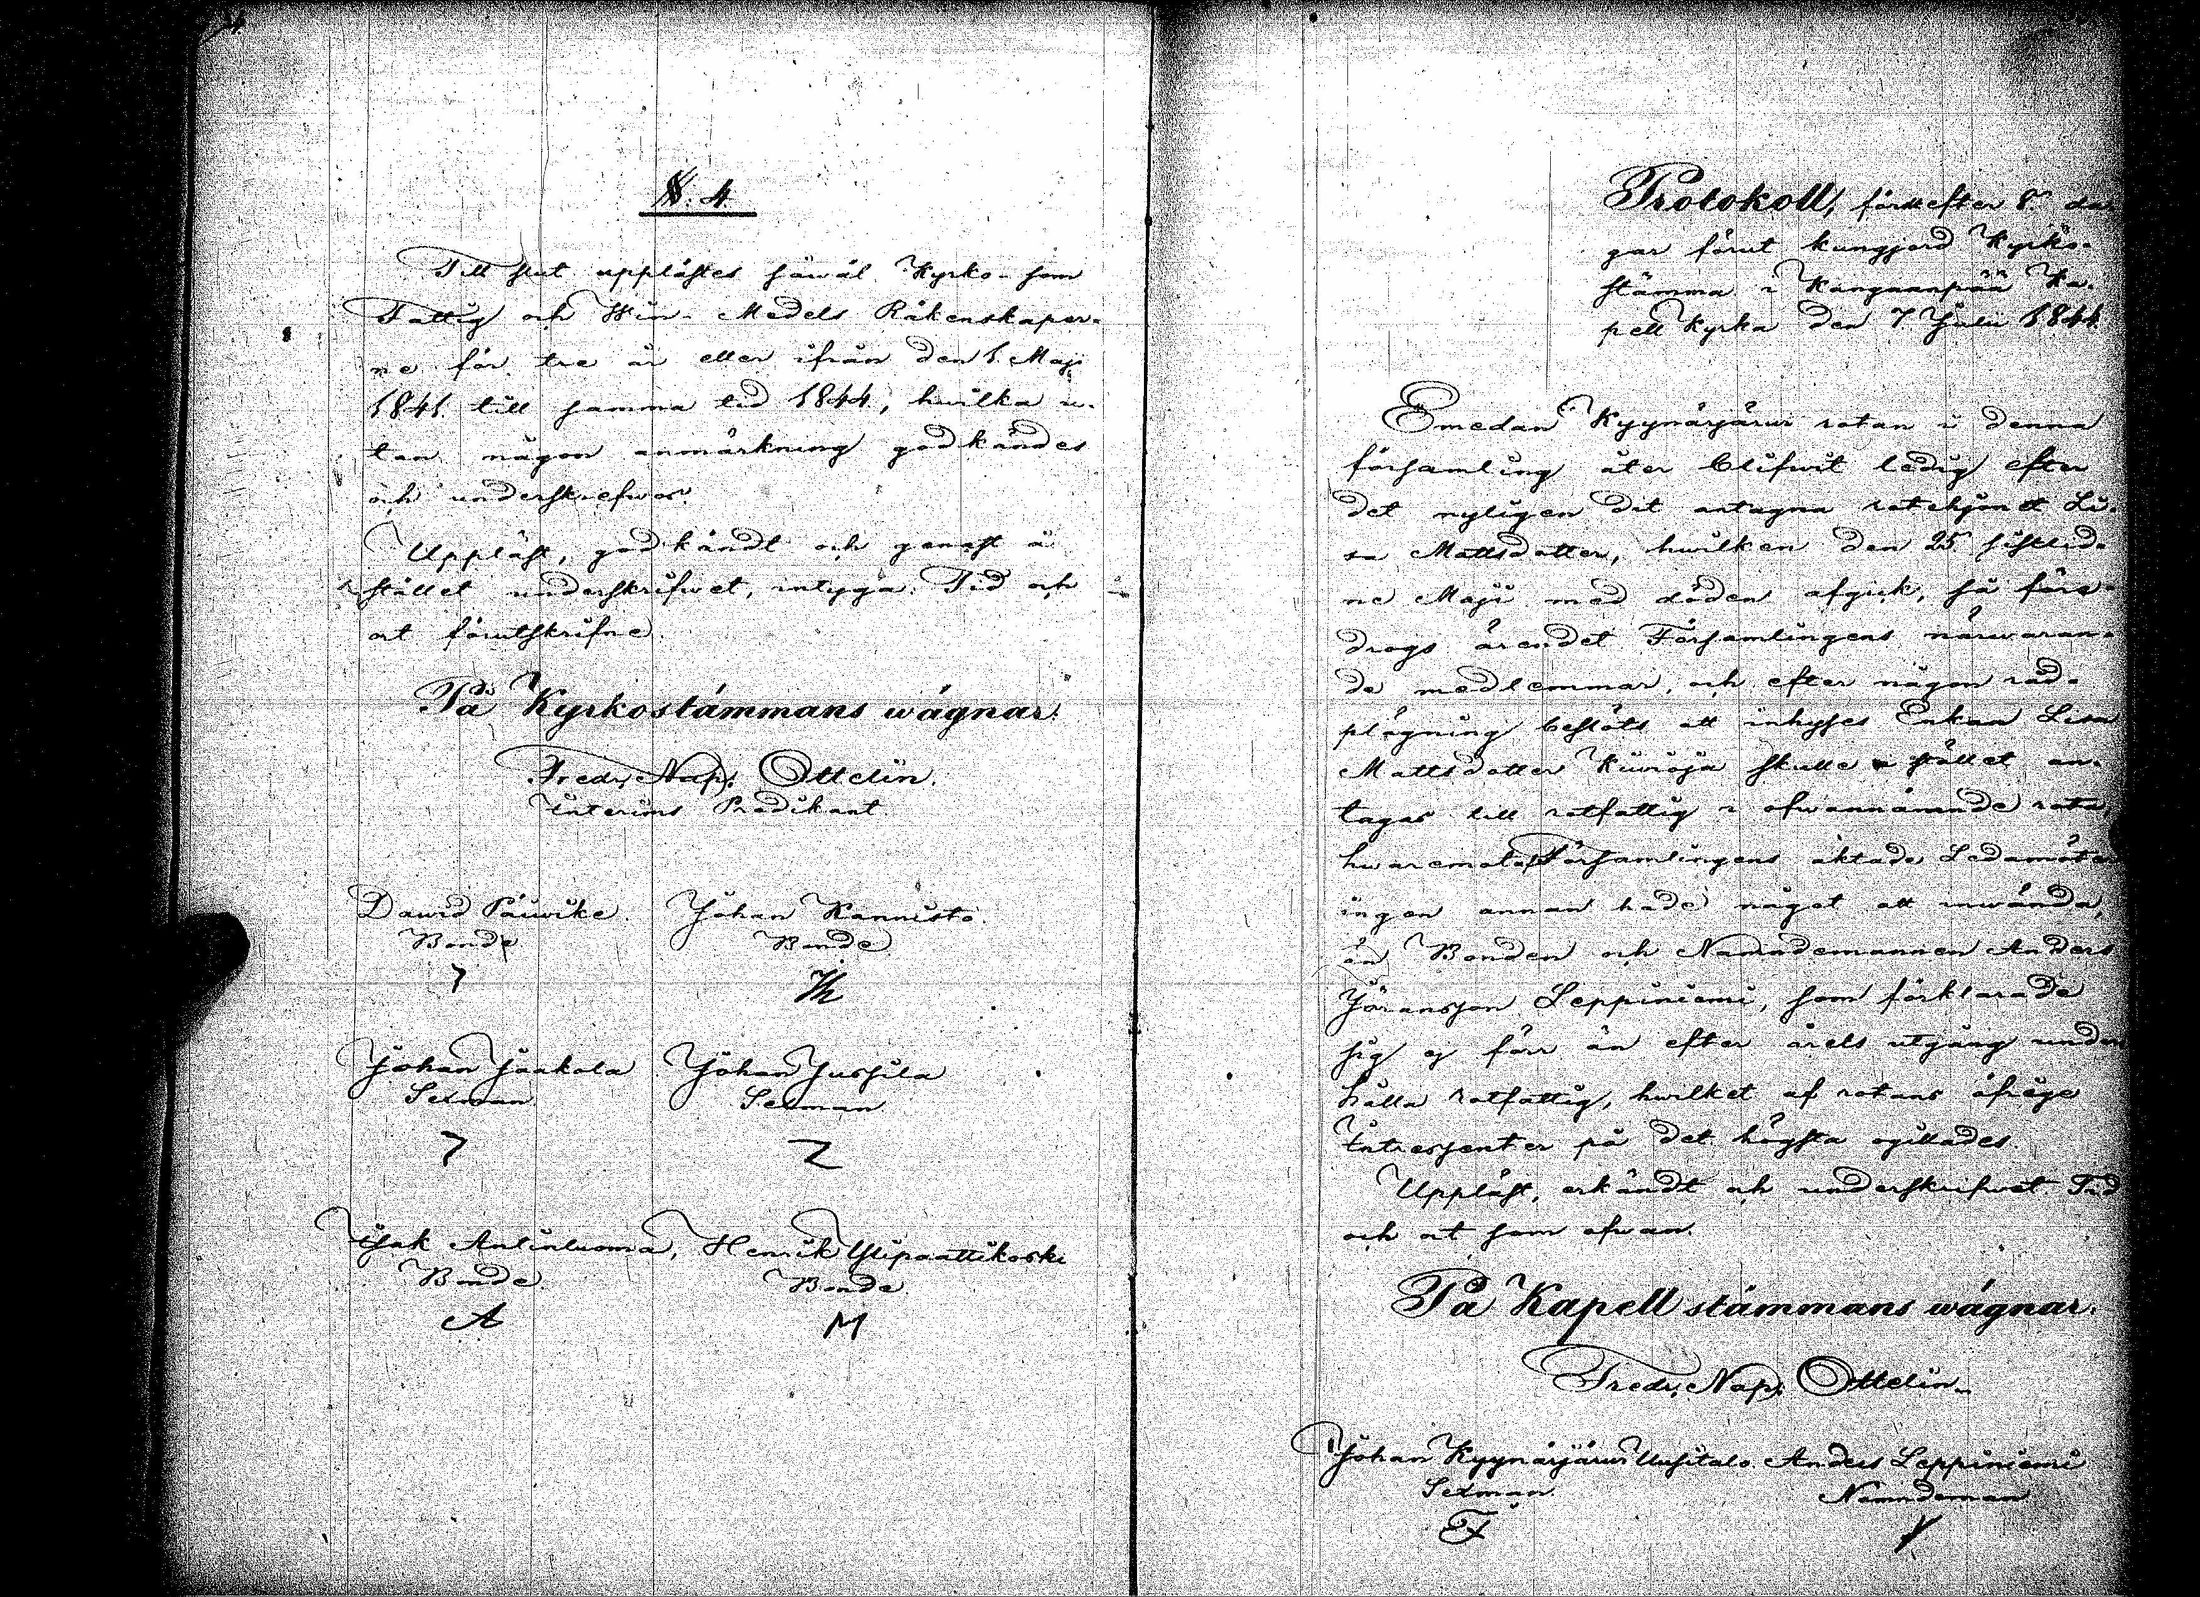 §. 4.
Till slut upplästes såwäl Kyrko- som
Fattig och Win- Medels Räkenskaper-
ne för tre år eller ifrån den 1. Maji
1841 till samma tid 1844, hwilka u-
tan någon anmärkning godkändes
och underskrefwos.
Uppläst, godkändt och genast å
stället underskrifwet, intyga. Tid och
ort förutskrifne.
På Kyrkostämmans wägnar.
Fredr. Nap. Ottelin.
Interims Predikant.
Dawid Päiwike. Johan Kannisto.
Bonde Bonde
Johan Jaakola Johan Jussila
Sexman Sexman
7 Z
Isak Antinluoma, Henrik Ylipaattikoski
Bonde Bonde
A M
Protokoll, fördt efter 8. da-
gar förut kungjord Kyrko-
stämma i Kangaanpää Ka-
pell kyrka den 7 Julii 1844.
Emedan Kyynärjärwi rotan i denna
församling åter blifwit ledig efter
det nyligen dit antagna rotehjonet Li-
sa Mattsdotter, hwilken den 25 sistlid-
ne Maji med döden afgick, så före-
drogs ärendet Församlingens närwaran-
de medlemmar, och efter någon råd-
plägning beslöts att inhyses Enkan Lisa
Mattsdotter Kiwioja skulle i stället an-
tagas till rotfattig i ofwannämnde rota,
hwaremot af Församlingens aktade Ledamöter
ingen annan hade något att inwända,
än Bonden och Nämndemannen Anders
Jöransson Leppiniemi, som förklarade
sig ej förr än efter årets utgång under
hålla rotfattig, hwilket af rotans öfrige
Intressenter på det högsta ogillades.
Uppläst, erkändt och underskrifwet. Tid
och ort som ofwan.
På Kapell stämmans wägnar.
Fredr. Nap. Ottelin.
Johan Kyynärjärwi Uusitalo. Anders Leppiniemi
Sexman Nämndeman